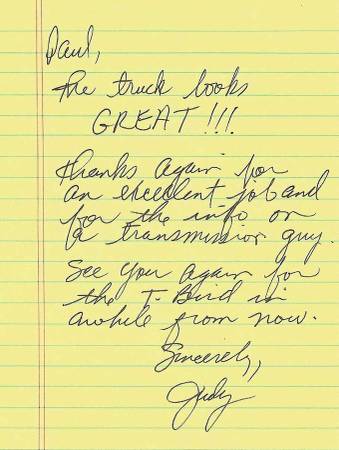 Paul,
The truck looks
GREAT!!!
Thanks again for
an excellent job and
for the info on
a transmission guy.
See you again for
the T-Bird in
awhile from now.
Sincerely,
Judy